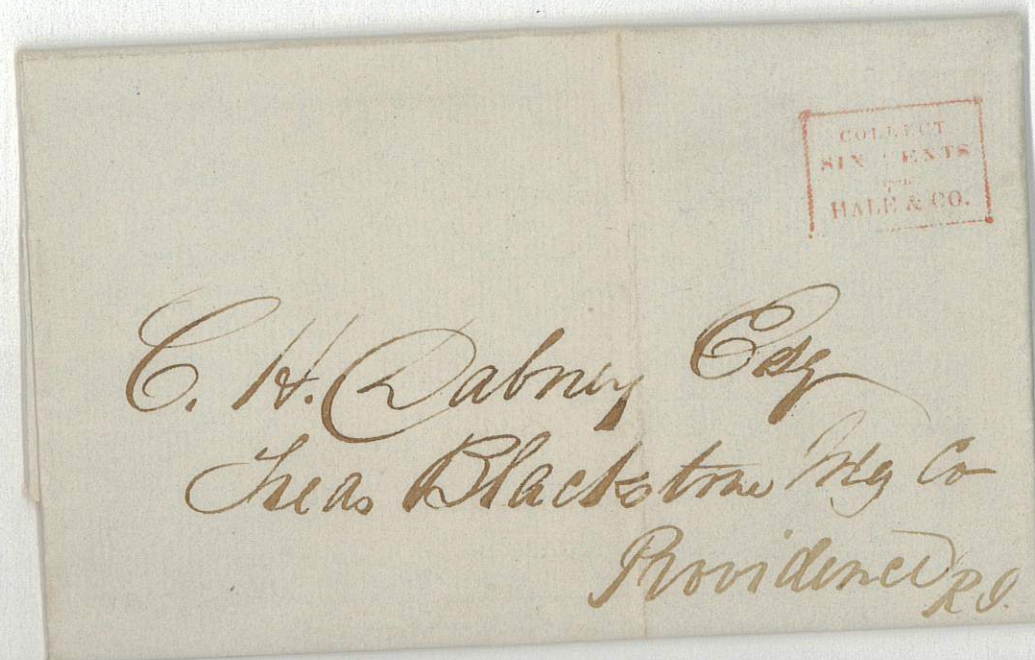 COLLECT
SIX CENTS
FOR
HALE & CO.
C. H. Dabney Esq
Treas Blackstone Mfg Co
Providence
R I.